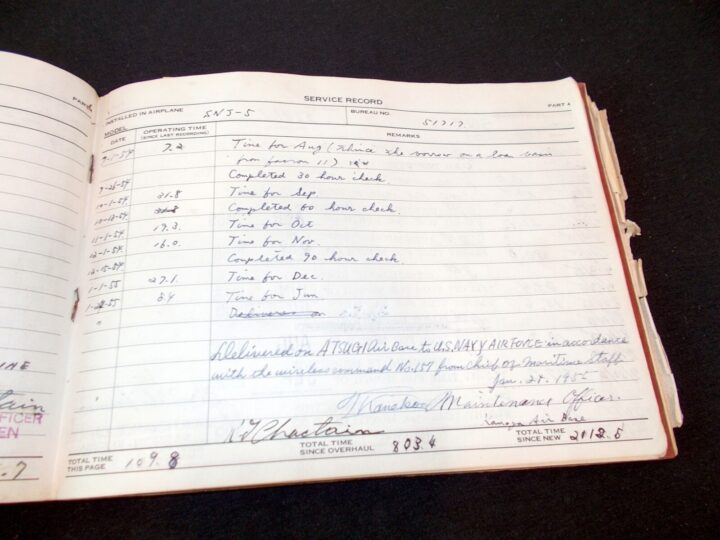 SERVICE RECORD
PART 4
INSTALLED IN AIRPLANE SNJ-5 BUREAU NO. 51717
MODEL
DATE OPERATING TIME (SINCE LAST RECORDING) REMARKS
9-1-54 7.2 Time for Aug (Since the borrow on a loan basis
from 11)
9-26-54 Completed 30 hour check
10-1-54 31.8 Time for Sep
10-12-54 Completed 60 hour check.
11-1-54 19.3. Time for Oct
12-1-54 16.0. Time for Nov.
12-15-54 Completed 90 hour check.
1-1-55 27.1. Time for Dec.
1-28-55 Time for Jan
" Delivered on
" Delivered on ATSUGI Air Base to U.S. NAVY AIR FORCE in accordance
with the wireless command No.157 from Chief of Maritime Staff
Jan. 28. 1955
T. Kaneko Maintenance Officer.
Kanoya Air Base
R J Chastain
TOTAL TIME THIS PAGE 109.8 TOTAL TIME SINCE OVERHAUL 803.4 TOTAL TIME SINCE NEW 2012.5
PART
INE
tain
FICER
EN
.7